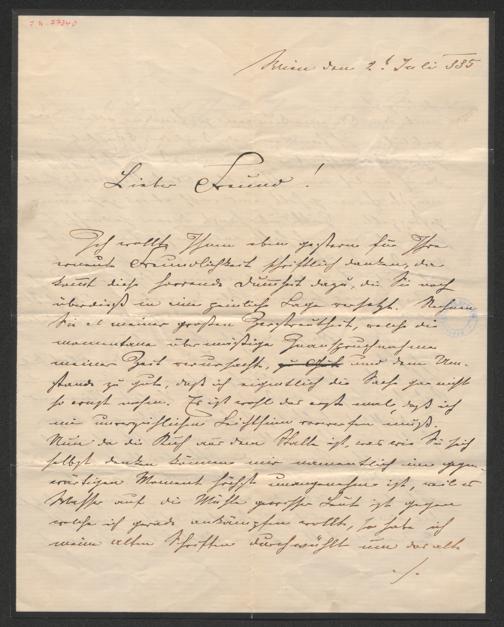 I. N. 27840
Wien den 2t Juli 885
Lieber Freund!
Ich wollte Ihnen eben gestern für Ihre
erneute Freundlichkeit schriftlich danken, da
kommt diese horrende Dummheit dazu, die Sie noch
überdieß in eine peinliche Lage versetzt. Rechnen
Sie es meiner großen Zerstreutheit, welche die
momentane übermäßige Inanspruchnahme
meiner Zeit verursacht, und dem Um-
stande zu gute, daß ich eigentlich die Sache gar nicht
so ernst nahm. Es ist wohl das erste mal, daß ich
mir unverzeihlichen Leichtsinn vorwerfen muß.
Nun da die Kuh aus dem Stalle ist, was wie Sie sich
selbst denken können mir namentlich im gegen-
wärtigen Moment höchst unangenehm ist, weil es
Wasser auf die Mühle gewisser Leute ist gegen
welche ich gerade ankämpfen wollte, so habe ich
meine alten Schriften durchwühlt um das alte
./.